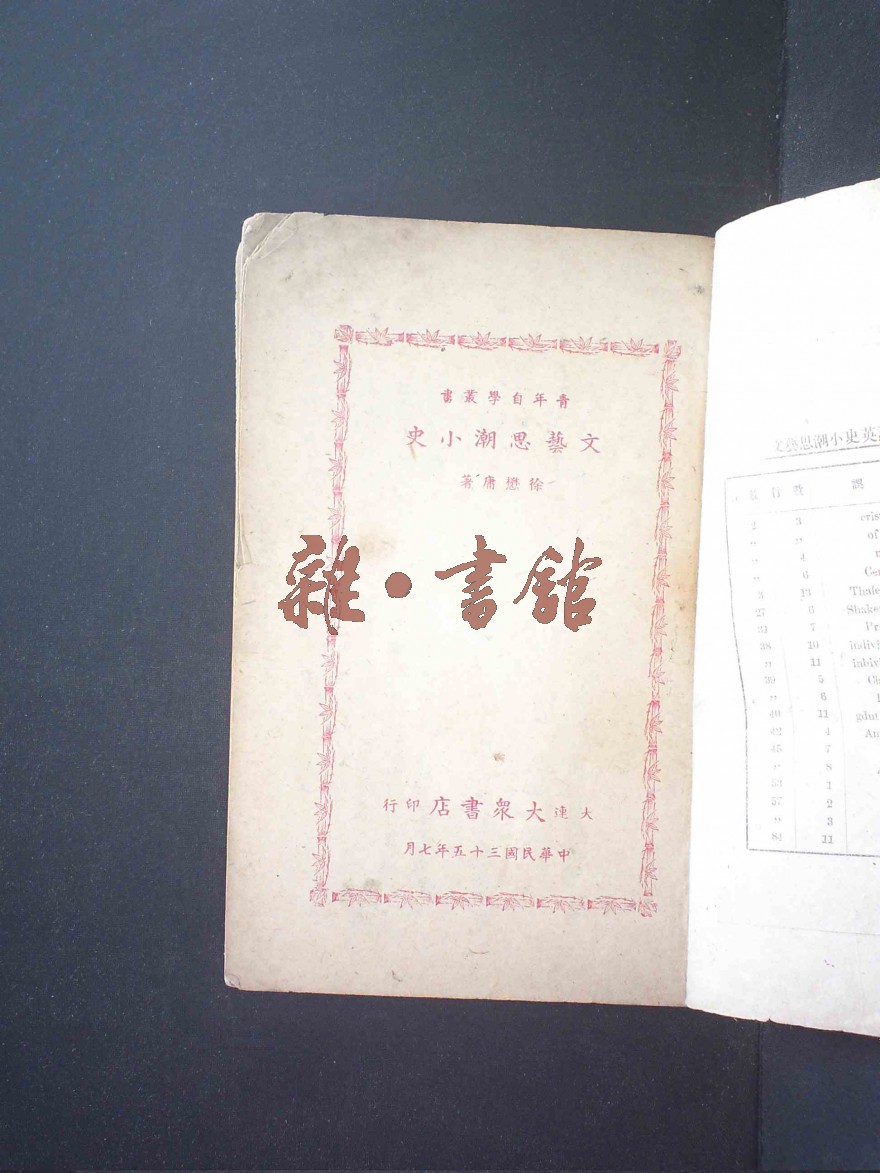 青年自學叢書
文藝思潮小史
徐懋庸著
雜·書館
大連大衆書店印行
中華民國三十五年七月
文藝思潮小史英
數 行 數 誤
2 3 cris
" " of
" 4
" 6 Ce
3 13 Thale
27 6 Shake
31 7 Pr
38 10 indivi
" 11 inbivi
39 5 Ch
" 6
40 11 gdut
42 4 Au
45 7
" 8
53 1
57 2
" 3
84 11